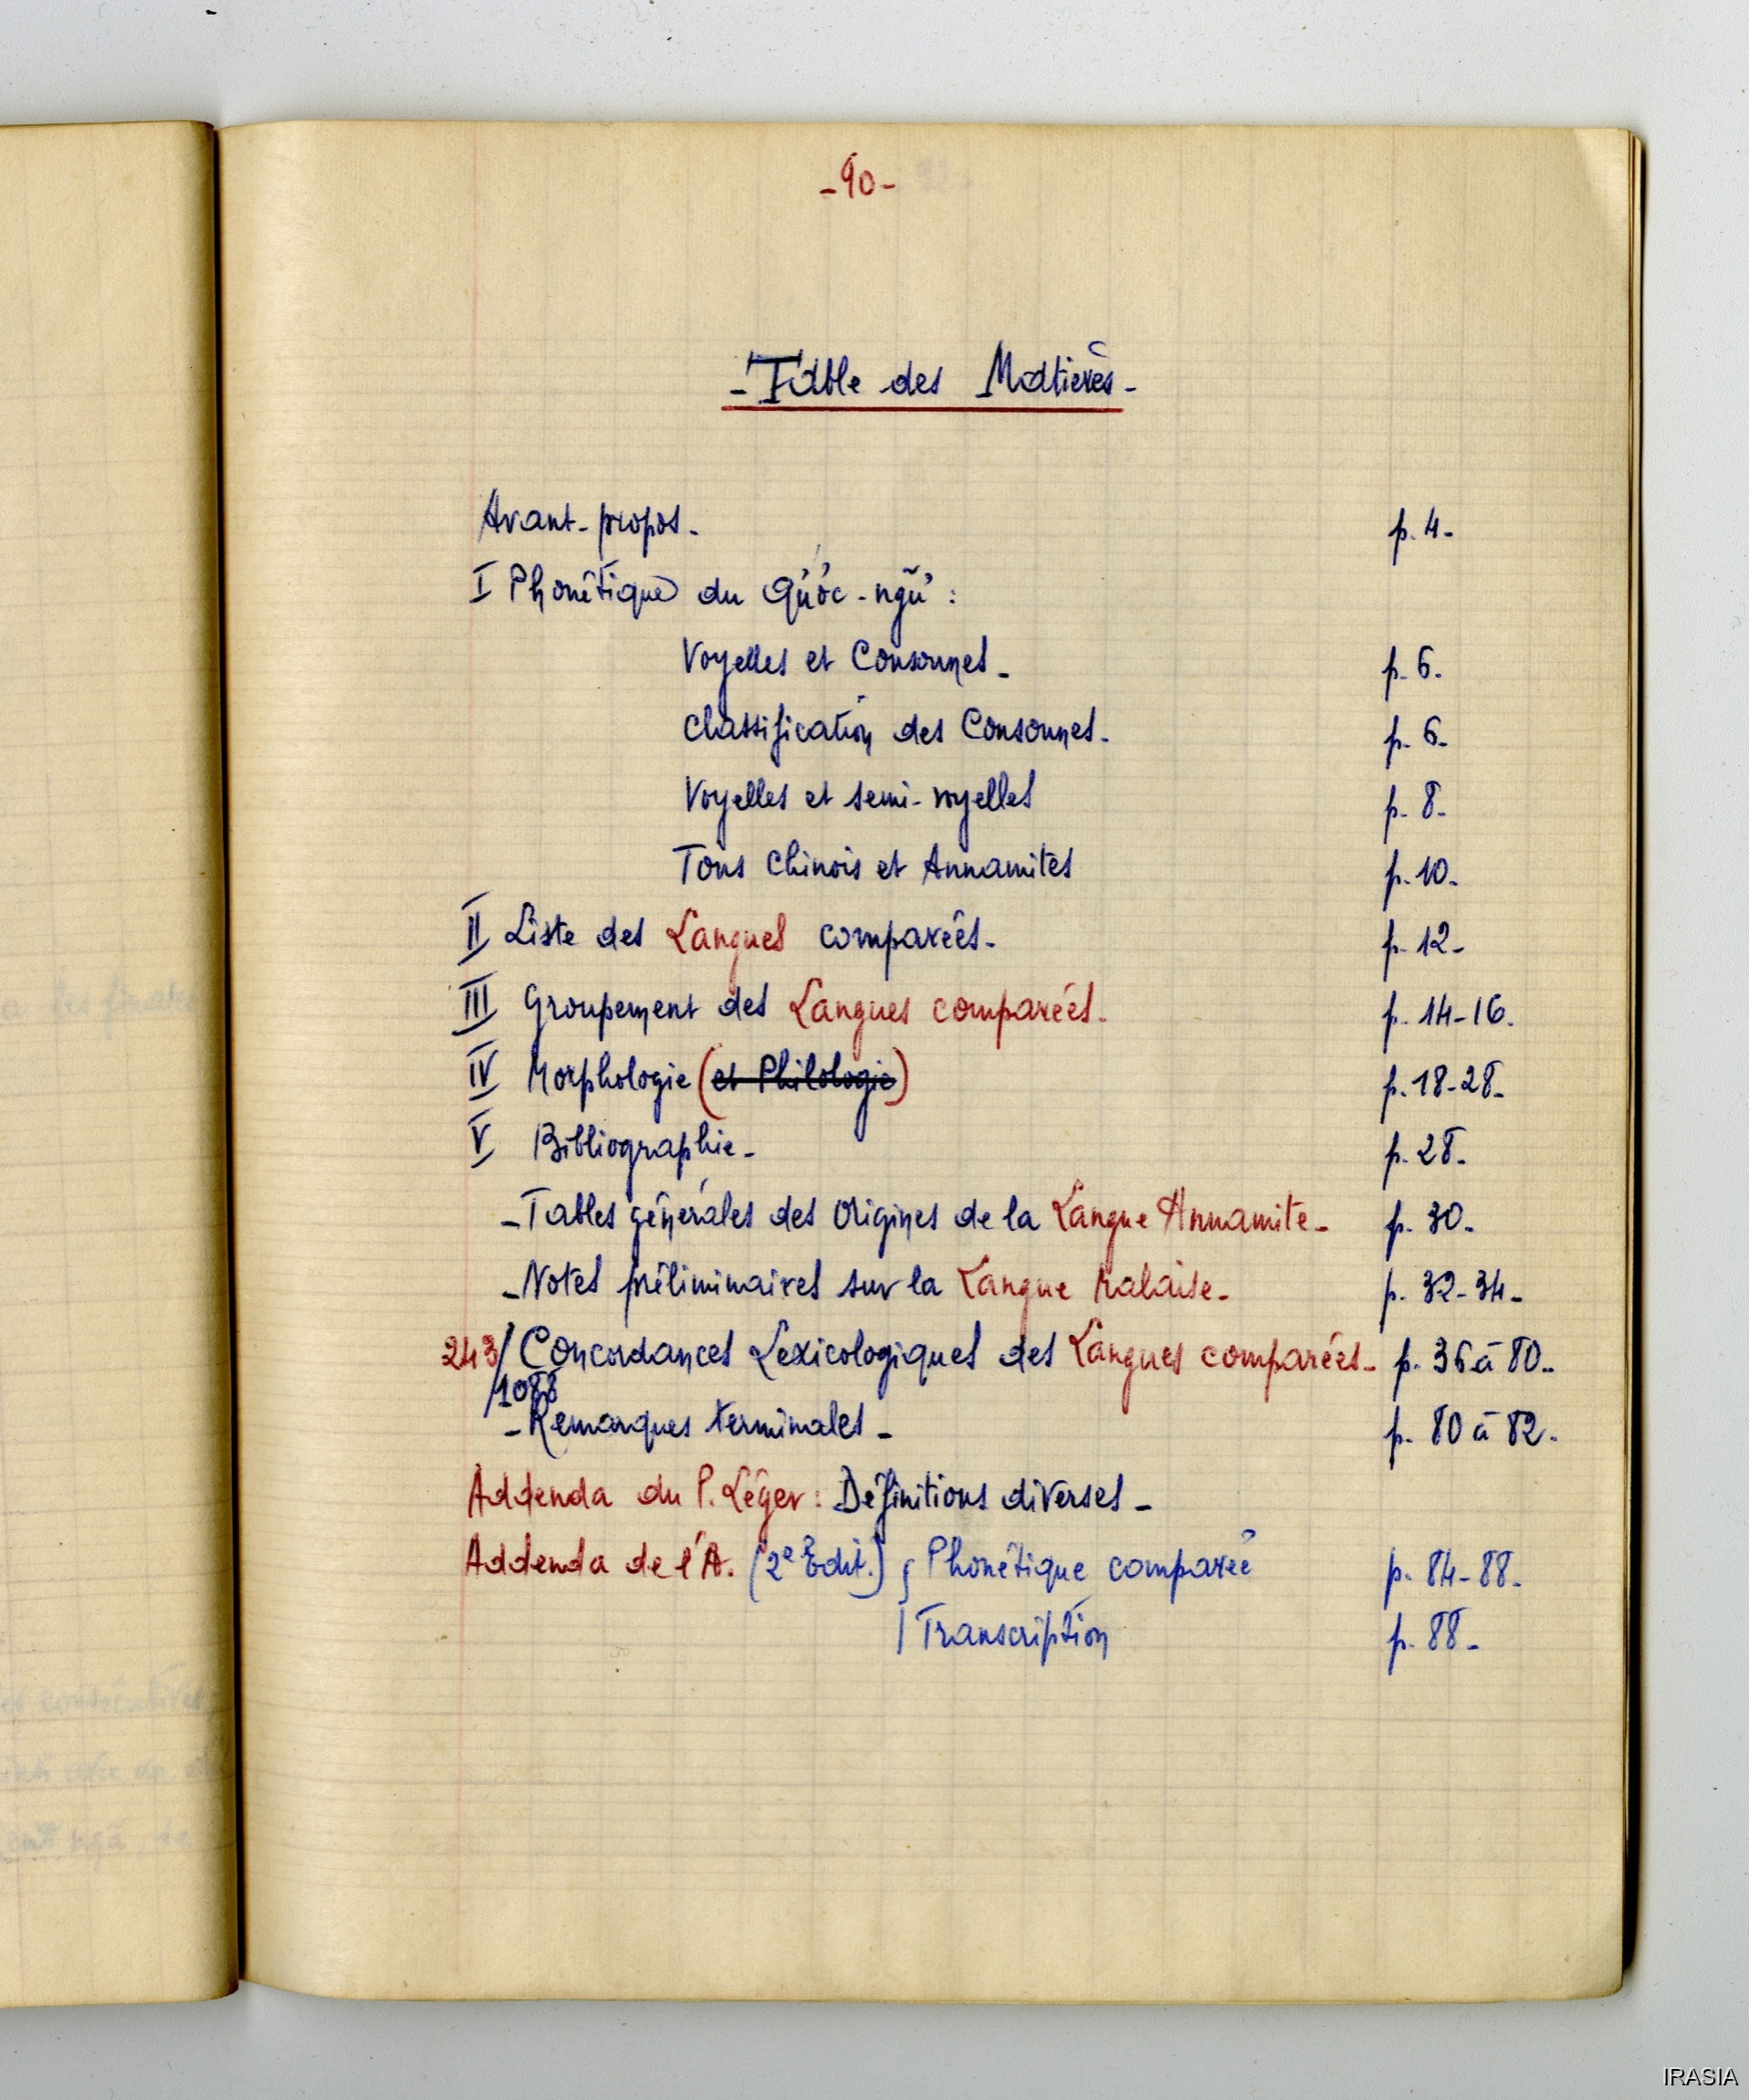 -90-
-Table des Matières-
Avant-propos- p.4-
I Phonétique du Quốc-ngữ :
Voyelles et Consonnes- p.6.
Classification des Consonnes- p.6-
Voyelles et semi-voyelles p.8-
Tons Chinois et Annamites p.10-
II Liste des Langues comparées- p.12-
III Groupement des Langues comparées- p.14-16.
IV Morphologie (et Philologie) p.18-28-
V Bibliographie- p.28-
-Tables générales des Origines de la Langue Annamite- p.30-
-Notes préliminaires sur la Langue Malaise- p.32-34-
243/ Concordances Lexicologiques des Langues comparées- p.36 à 80-
/1088
-Remarques terminales- p.80 à 82-
Addenda du P. Léger : Définitions diverses-
Addenda de l'A. (2e Edit.) { Phonétique comparée p.84-88-
| Transcription p.88-
IRASIA